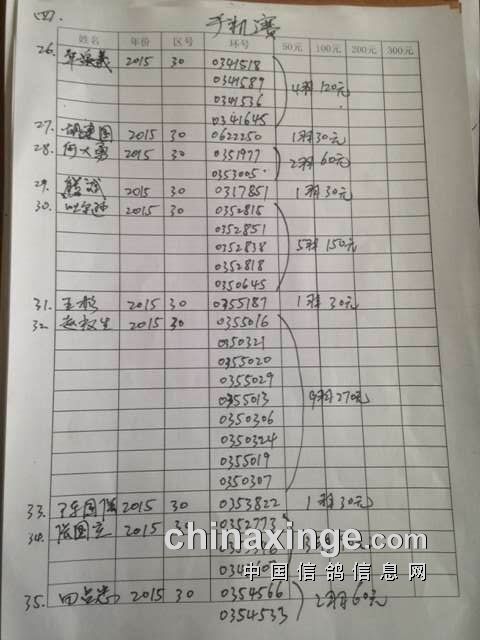 (四).
手机赛
姓名 年份 区号 环号 50元 100元 200元 300元
26. 2015 30 0341518
0341589
0341536 4羽120元
0341645
27. 2015 30 0622250 1羽30元
28. 何大勇 2015 30 0351977
0353005 2羽60元
29. 2015 30 0317851 1羽30元
30. 2015 30 0352815
0352851
0352838 5羽150元
0352818
0350645
31. 2015 30 0355187 1羽30元
32. 赵权生 2015 30 0355016
0350321
0355020
0355029
0355013 9羽270元
0350306
0350324
0355019
0350307
33. 2015 30 0353822 1羽30元
34. 张国立 2015 30 0352773
chinaxinge.com
中国信鸽信息网
35. 2015 30 0354566 2羽60元
0354533